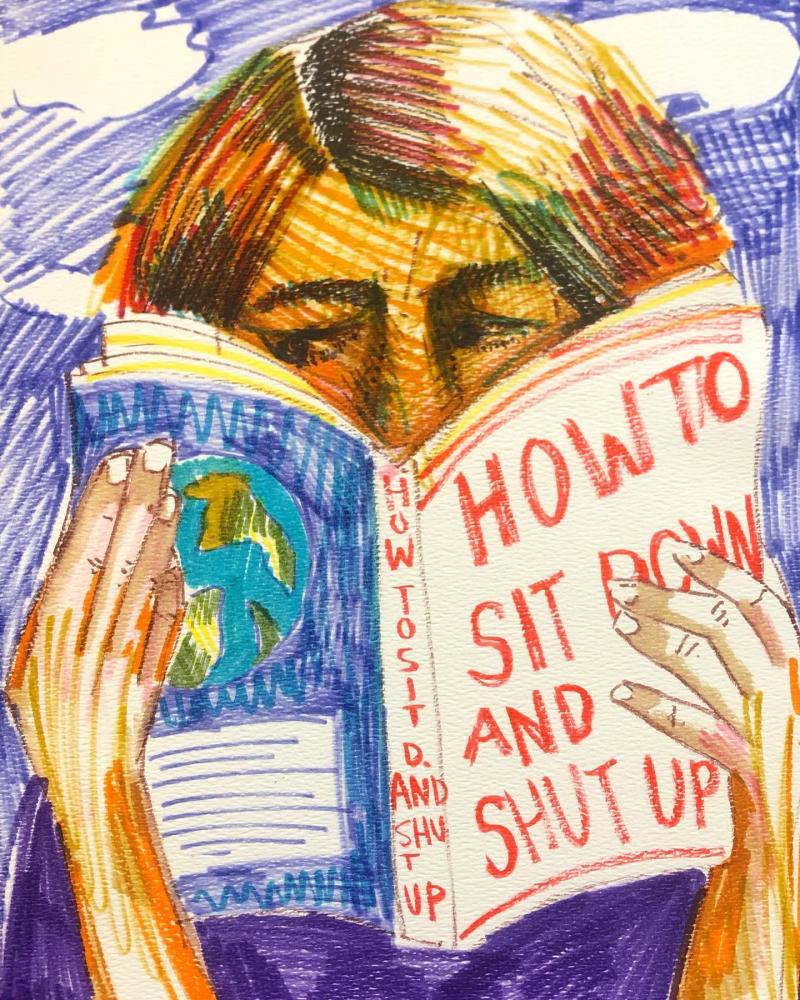 HOW TO SIT D. AND SHUT UP
HOW TO
SIT DOWN
AND
SHUT UP